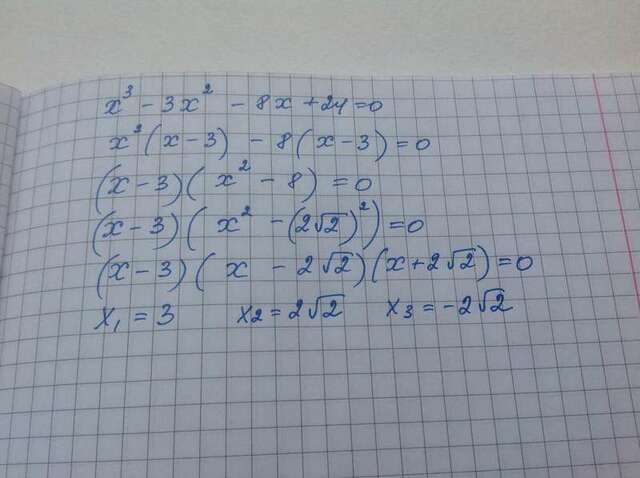 x³ - 3x² - 8x + 24 = 0
x²(x - 3) - 8(x - 3) = 0
(x - 3)(x² - 8) = 0
(x - 3)(x² - (2√2)²) = 0
(x - 3)(x - 2√2)(x + 2√2) = 0
x₁ = 3 x₂ = 2√2 x₃ = -2√2